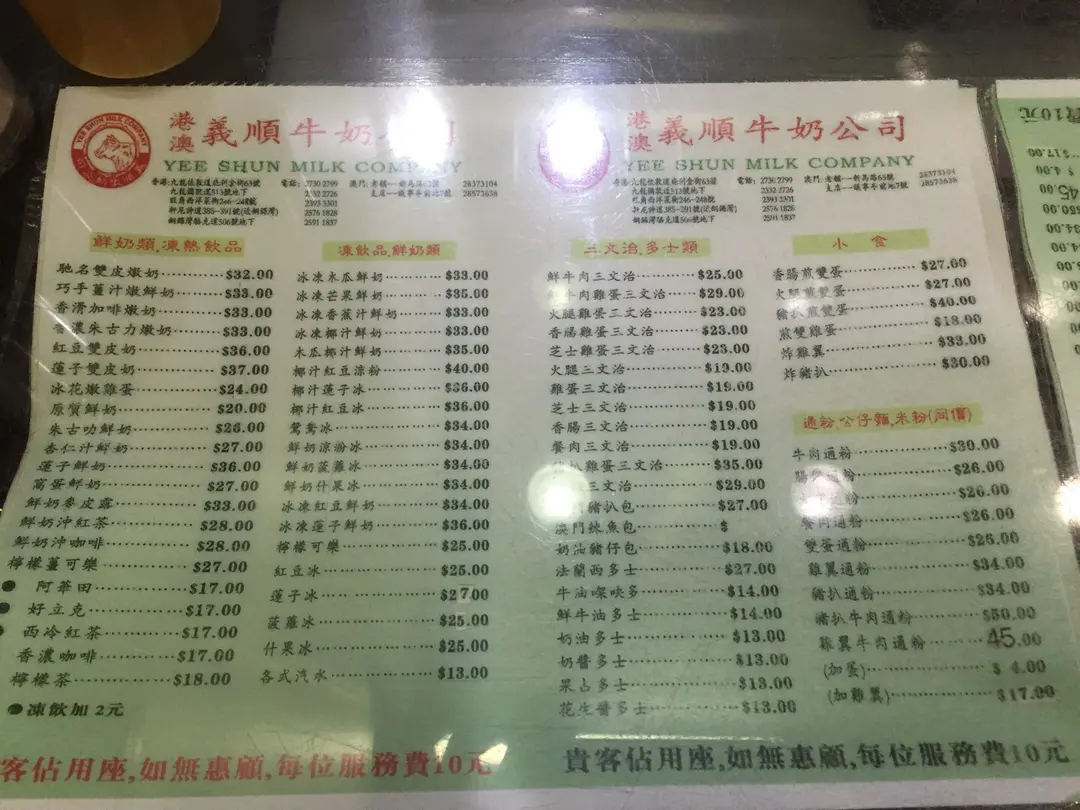 YEE SHUN MILK COMPANY
港澳 義順牛奶 司
YEE SHUN MILK COMPANY
香港:九龍佐敦道庇利金街63號 電話: 2730 2799
2332 2726
旺角西洋菜街246-248號 2393 3301
軒尼詩道385-391號(近銅鑼灣) 2576 1828
銅鑼灣駱克道506號地下 2591 1837
28573104
28573638
鮮奶類,凍熱飲品
馳名雙皮燉奶 $32.00
巧手薑汁燉鮮奶 $33.00
香滑咖啡燉奶 $33.00
香濃朱古力燉奶 $33.00
紅豆雙皮奶 $36.00
蓮子雙皮奶 $37.00
冰花燉雞蛋 $24.00
原質鮮奶 $20.00
朱古叻鮮奶 $26.00
杏仁汁鮮奶 $27.00
蓮子鮮奶 $36.00
窩蛋鮮奶 $27.00
鮮奶麥皮露 $33.00
鮮奶沖紅茶 $28.00
鮮奶沖咖啡 $28.00
檸檬薑可樂 $27.00
● 阿華田 $17.00
● 好立克 $17.00
西冷紅茶 $17.00
香濃咖啡 $17.00
檸檬茶 $18.00
●凍飲加 2元
凍飲品,鮮奶類
冰凍木瓜鮮奶 $33.00
冰凍芒果鮮奶 $35.00
冰凍香蕉汁鮮奶 $33.00
冰凍椰汁鮮奶 $33.00
木瓜椰汁鮮奶 $35.00
椰汁紅豆涼粉 $40.00
椰汁蓮子冰 $36.00
椰汁紅豆冰 $36.00
鴛鴦冰 $34.00
鮮奶涼粉冰 $34.00
鮮奶菠蘿冰 $34.00
鮮奶什果冰 $34.00
冰凍紅豆鮮奶 $34.00
冰凍蓮子鮮奶 $36.00
檸檬可樂 $25.00
紅豆冰 $25.00
蓮子冰 $27.00
菠蘿冰 $25.00
什果冰 $25.00
各式汽水 $13.00
客佔用座,如無惠顧,每位服務費10元
港澳 義順牛奶公司
YEE SHUN MILK COMPANY
香港:九龍佐敦道庇利金街63號 電話: 2730 2799 澳門: 老舖 新馬路65號 28573104
2332 2726 28573638
旺角西洋菜街246-248號 2393 3301
軒尼詩道385-391號(近銅鑼灣) 2576 1828
銅鑼灣駱克道506號地下 2591 1837
三文治,多士類
鮮牛肉三文治 $25.00
牛肉雞蛋三文治 $29.00
火腿雞蛋三文治 $23.00
香腸雞蛋三文治 $23.00
芝士雞蛋三文治 $23.00
火腿三文治 $19.00
雞蛋三文治 $19.00
芝士三文治 $19.00
香腸三文治 $19.00
餐肉三文治 $19.00
扒雞蛋三文治 $35.00
三文治 $29.00
豬扒包 $27.00
澳門辣魚包 $
奶油豬仔包 $18.00
法蘭西多士 $27.00
牛油㗎吙多 $14.00
鮮牛油多士 $14.00
奶油多士 $13.00
奶醬多士 $13.00
果占多士 $13.00
花生醬多士 $13.00
小 食
香腸煎雙蛋 $27.00
火腿煎雙蛋 $27.00
豬扒煎雙蛋 $40.00
煎雙雞蛋 $18.00
炸雞翼 $33.00
炸豬扒 $30.00
通粉,公仔麵,米粉(同價)
牛肉通粉 $30.00
通粉 $26.00
通粉 $26.00
餐肉通粉 $26.00
雙蛋通粉 $25.00
雞翼通粉 $34.00
豬扒通粉 $34.00
豬扒牛肉通粉 $50.00
雞翼牛肉通粉 45.00
(加蛋) $ 4.00
(加雞翼) $17.00
貴客佔用座,如無惠顧,每位服務費10元